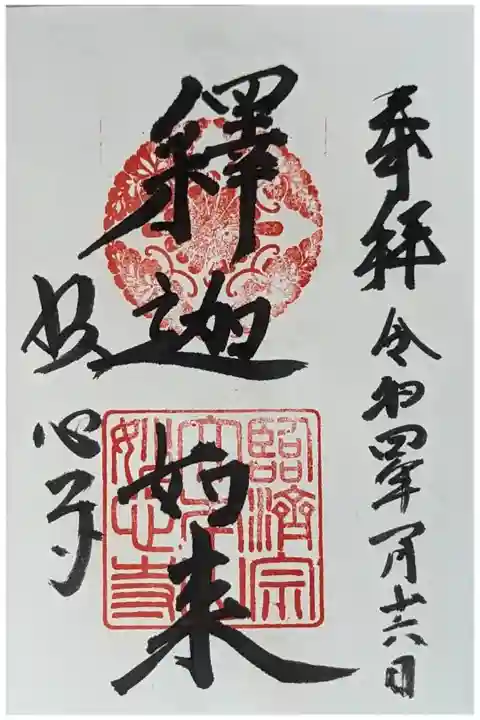 奉拝 令和四年一月十六日
釋迦如来
妙心寺
臨済宗
大本山
妙心寺